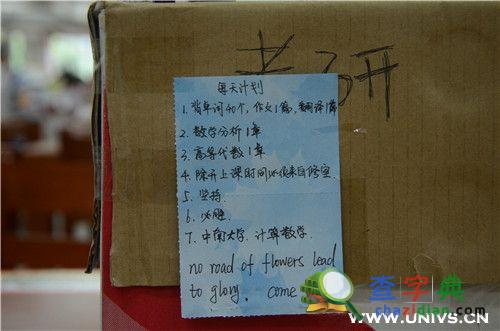 考研
每天计划
1. 背单词40个，作文1篇，翻译1篇
2. 数学分析1章
3. 高等代数1章
4. 除开上课时间必须来自修室
5. 坚持.
6. 必胜.
7. 中南大学. 计算数学.
no road of flowers lead
to glory. come
查字典
chazidian.com
www.UNIVS.CN